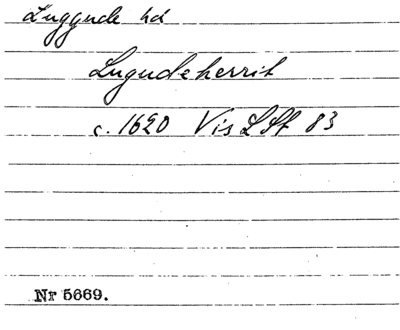 Luggude hd
Lugudeherrit
c. 1620 Vis LSt 83
Nr 5669.